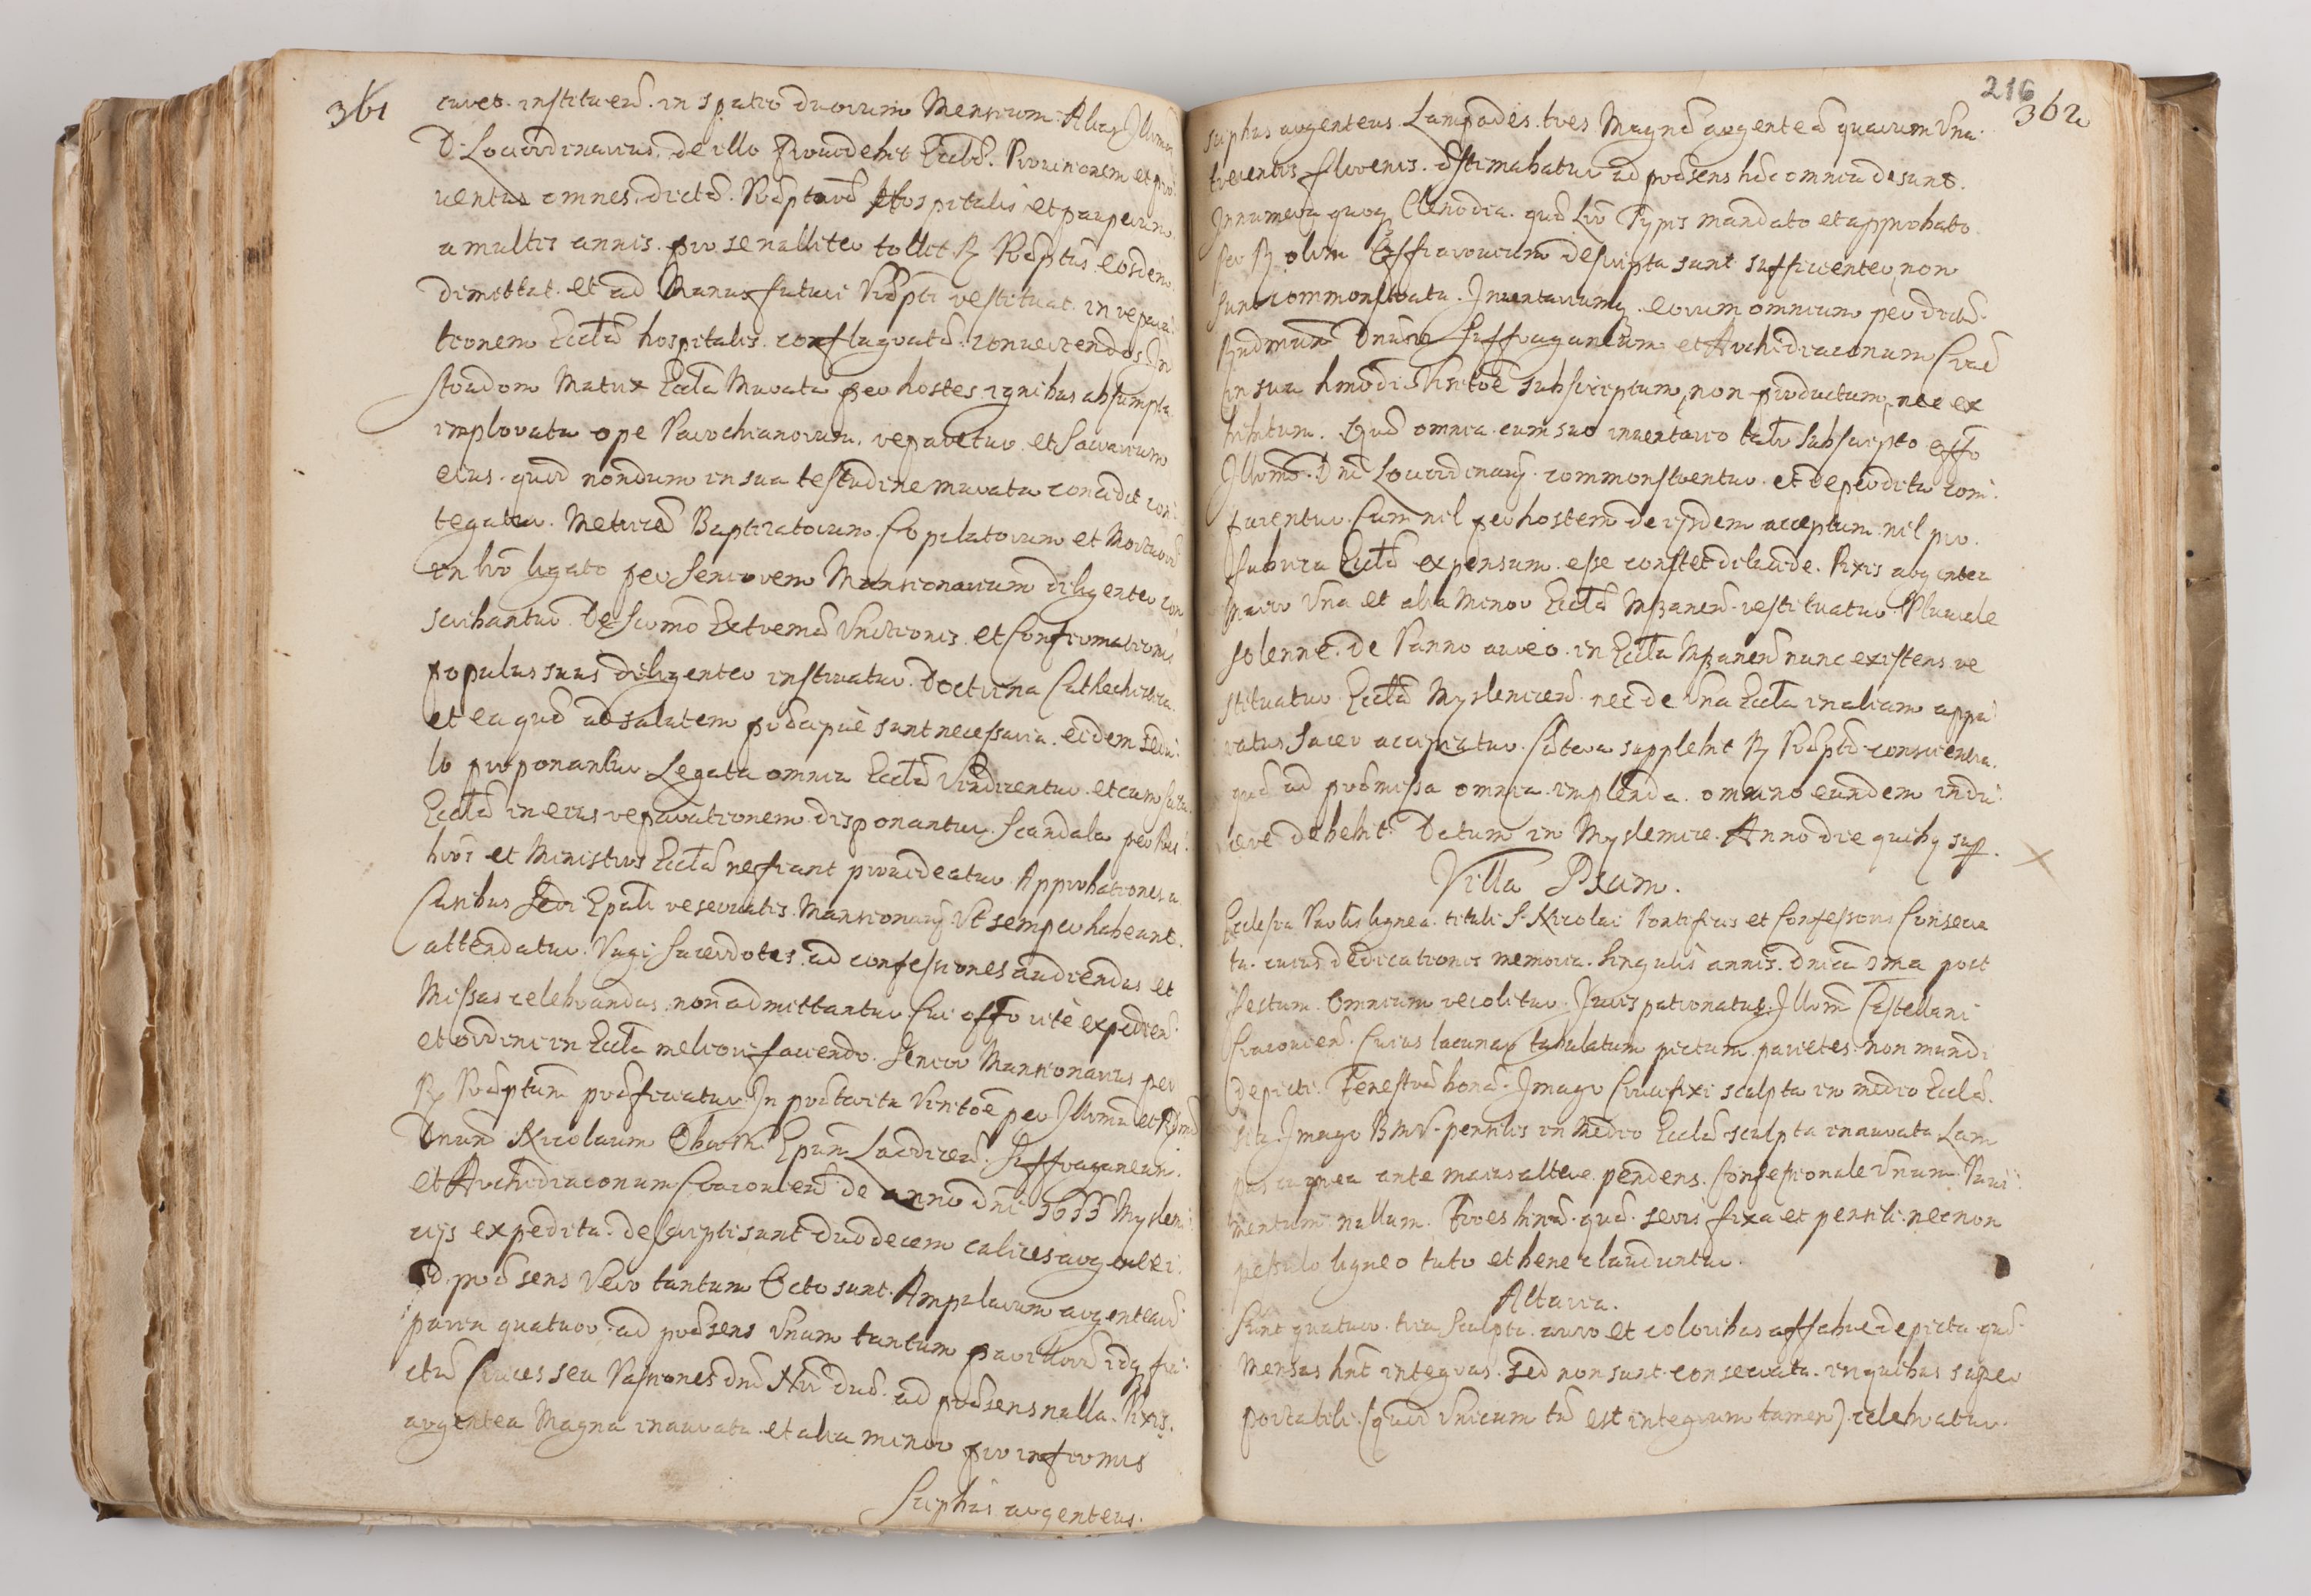 361
curet. instituend. in spatio duorum Mensium. Alias Illmus
D. Locordinarius. de illo providebit Eccliae. Provisionem et pro
ventus omnes. dictae. Praepturae Hospitalis et pauperum.
a multis annis. pro se nalliter tollit R Praeptus eosdem
dimittat. et ad Manus futuri Praepti restituat. in repara
tionem Eccliae hospitalis. conflagratae. convertendos. In
stradom Matrix Eccla Murata per hostes ignibus absumpta
implorata ope Parochianorum. reparetur. et Sacrarium
eius. quod nondum in sua testudine murata concidit con
tegatur. Metricae Baptizatorum. Copulatorum et Mortuorum
in libro ligato per Seniorem Mansionarium diligenter con
scribantur. De Scrmo Extremae Unctionis. et Confirmationis
populus suus diligenter instruatur. Doctrina Cathechistica.
et ea quae ad salutem praecipuè sunt necessaria. eidem sedu
lo proponantur. Legata omnia Eccliae Vindicentur. et cum scitu
Eccliae in eius reparationem disponantur. Scandala per Pres
biros et Ministros Eccliae ne fiant provideatur. Approbationes a
Casibus Sedi Epali reservatis. Mansionarij Ut semper habeant.
attendatur. Vagi Sacerdotes. ad confessiones audiendas et
Missas celebrandas. non admittantur. Cui offo ritè expediend.
et ordini in Eccla meliori faciendo. Senior Mansionarius per
R Praeptum praeficiatur. In praeterita Visitoe per Illmum et Rndmum
Dnum Nicolaum Oborski Epum Laodicen. Suffraganeum.
et Archidiaconum Cracovien. de anno Dni 1655 Myslem
cijs expedita. descripti sunt duodecem calices argentei.
ad praesens Vero tantum Octo sunt. Ampularum argentearum
paria quatuor. ad praesens Unum tantum par illorum idq fra
ctum. Cruces seu Passiones dni Nri duae. ad praesens nulla. Pixis.
argentea Magna inaurata. et alia minor pro infirmis
Scyphus argenteus.
216
362
scyphus argenteus. Lampades. tres Magnae argenteae quarum Una.
trecentis florenis. aestimabatur ad praesens haec omnia desunt.
Innumera quoq Clenodia. quae libro Typis mandato et approbato
per R olim Officialium descripta sunt sufficienter, non
sunt commonstrata. Inventariumq. eorum omnium per dictum.
Rndmum Dnum Suffraganeum et Archidiaconum Crac
in sua hmodi Visitoe subscriptum, non productum, nec ex
hibitum. Quae omnia cum suo inventario tali subscripto offo
Illmo. Dni Locordinarij. commonstrentur. et deperdita com
parentur. Cum nil per hostem de ijsdem acceptum. nil pro.
fabrica Eccliae expensum. esse constet dilucide. Pixis argentea
maior Una et alia minor Eccliae Mszanen. restituatur. Pluviale
solenne. de Panno aureo. in Eccla Mszanen nunc existens. re
stituatur. Eccliae Myslenicen. nec de Una Eccla in aliam appa
ratus sacer accipiatur. Caetera supplebit R Praepti conscientia.
quae ad praemissa omnia implenda. omnino eundem indu
cere debebit. Datum in Myslemice. Anno die quibq sup.
Villa Pcim.
Ecclesia Paolis lignea. tituli S. Nicolai Pontificis et Confessoris Consecra
ta. cuius dedicationis memoria. singulis annis. Dnica 1ma post
festum. Omnium recolitur. Juris patronatus Illmi Castellani
Cracovien. Cuius lacunar tabulatum pictum. parietes. non mundi
depicti. Fenestrae bonae. Imago Crucifixi sculpta in medio Eccliae.
sita. Imago BMV. pensilis in Medio Eccliae sculpta inaurata. Lam
pas cuprea ante maius altare pendens. Confessionale Unum. Pavi
mentum nullum. Fores binae. quae. seris fixa et pensili. necnon
pessulo ligneo tuto et bene clauduntur.
Altaria.
Sunt quatuor. tria sculpta. auro et coloribus affabre depicta quae.
Mensas hnt integras. sed non sunt consecrata. in quibus super
portatili. (quod Unicum tm est integrum tamen) celebratur.